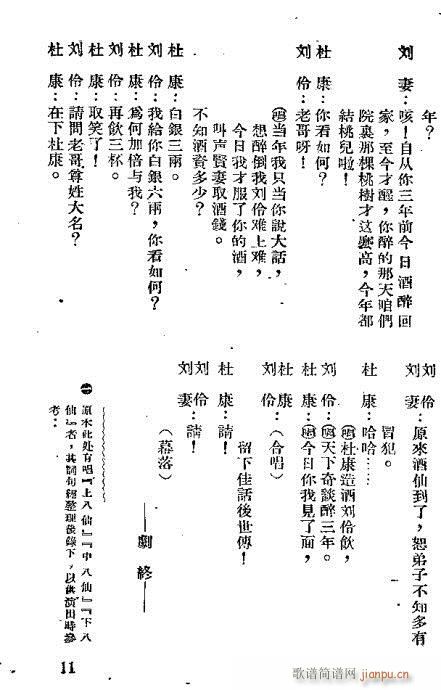 年？
刘　妻：咳！自从你三年前今日酒醉回
家，至今才醒，你醉的那天咱們
院裏那棵桃樹才这麽高，今年都
結桃兒啦！
杜　康：你看如何？
刘　伶：老哥呀！
(唱)当年我只当你說大話，
想醉倒我刘伶难上难，
今日我才服了你的酒，
叫声賢妻取酒錢。
不知酒資多少？
杜　康：白銀三兩。
刘　伶：我給你白銀六兩，你看如何？
杜　康：爲何加倍与我？
刘　伶：再飲三杯。
杜　康：取笑了！
刘　伶：請問老哥尊姓大名？
杜　康：在下杜康。
刘　伶：原來酒仙到了，恕弟子不知多有
刘　妻
冒犯。
杜　康：哈哈……
刘　伶：(唱)杜康造酒刘伶飲，
杜　康：(唱)天下奇談醉三年。
(唱)今日你我見了面，
杜　康
刘　伶：（合唱）
留下佳話後世傳！
杜　康：請！
刘　伶：請！
刘　妻
（幕落）
——劇　終——
㊀ 原來此处有唱『上八仙』『中八仙』『下八
仙』者，其詞句經整理後錄下，以供演出時參
考：
11
歌谱简谱网
jianpu.cn